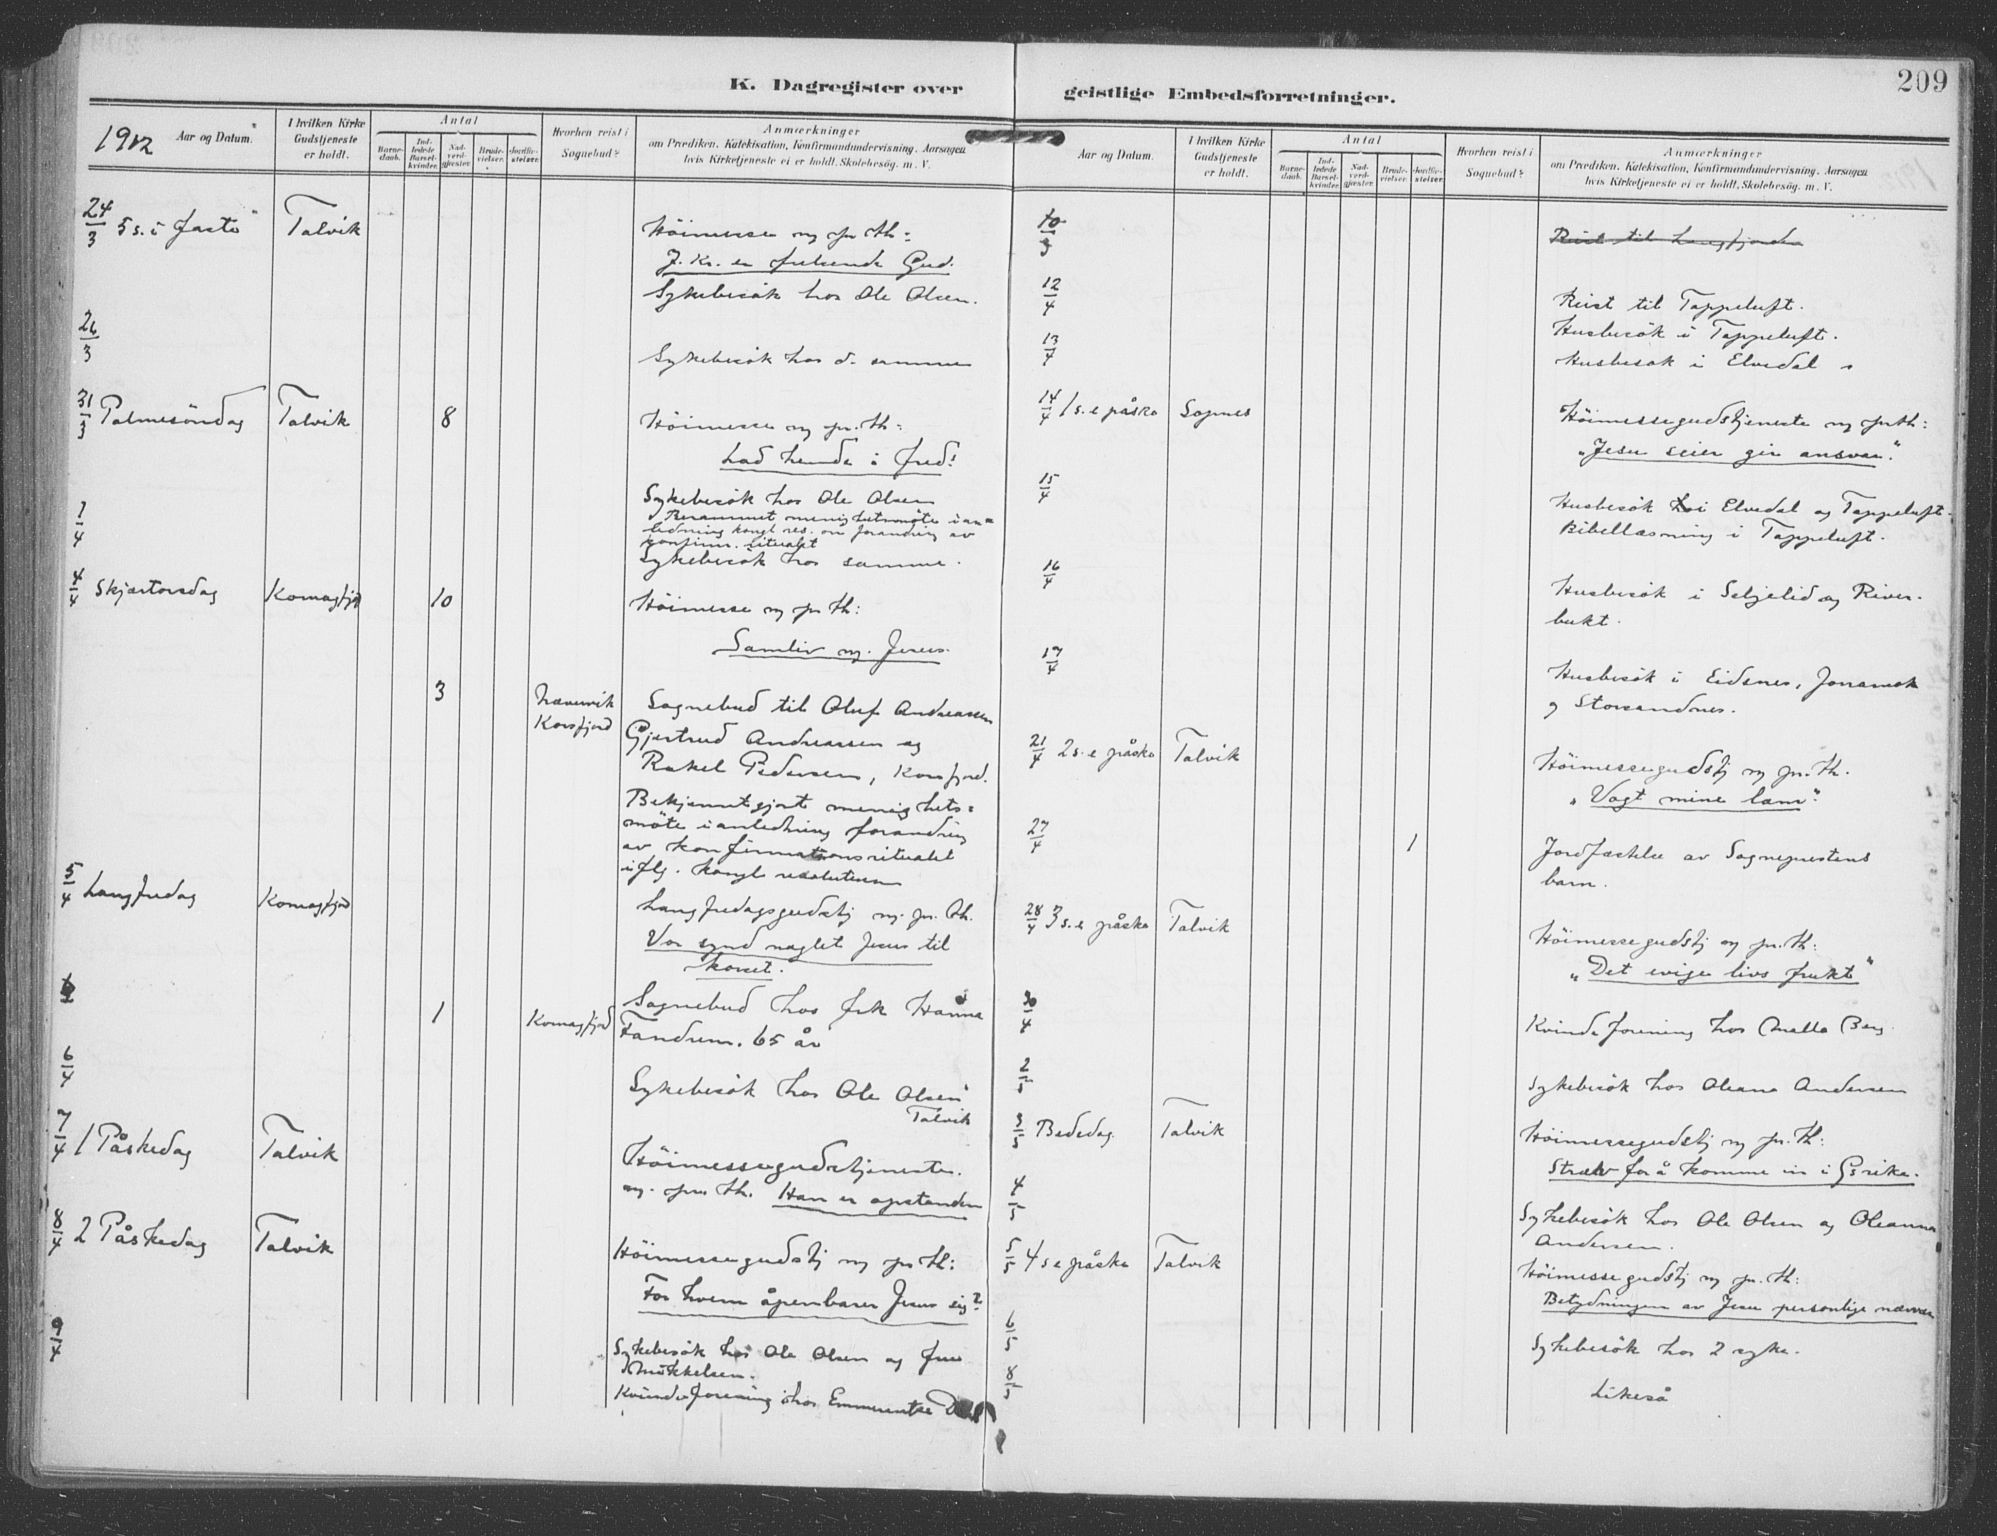 209
K. Dagregister over geistlige Embedsforretninger.
1912 Aar og Datum.
I hvilken Kirke Gudstjeneste er holdt.
Antal
Barnedaab.
Indledede Barselkvinder.
Nadverdgjester.
Brudevielser.
Jordfæstelser.
Hvorhen reist i Sognebud?
Anmærkninger
om Prædiken. Katekisation, Konfirmandundervisning. Aarsagen
hvis Kirketjeneste ei er holdt. Skolebesög. m. V.
24/3 5 s. i faste Talvik Höimesse m pr th:
J. Kr. er frelsende Gud.
Sykebesök hos Ole Olsen.
26/3
Sykebesök hos d. samme
31/3 Palmesöndag Talvik 8 Höimesse m pr. th:
Lad hende i fred!
Sykebesök hos Ole Olsen
Berammet menighetsmöte i an=
ledning kongl. res. om forandring av
konfirm. ritualet
1/4 Sykebesök hos samme.
4/4 Skjærtorsdag Komagfjd 10 Höimesse m pr th:
Samliv m. Jesus.
3 Korsfjord Sognebud til Oluf Andreassen
Gjertrud Andreassen og
Rakel Pedersen, Korsfjord.
Bekjentgjort menighets=
möte i anledning forandring
av konfirmationsritualet
iflg. kongl resolution
5/4 Langfredag Komagfjord Langfredagsgudstj m. pr. th.
Vor synd naglet Jesus til
korset.
1 Komagfjord Sognebud hos frk Hanna
Tandrem. 65 år
6/4 Sykebesök hos Ole Olsen
Talvik
7/4 1 Påskedag Talvik Höimessegudstjeneste.
m. pr. th. Han er opstanden
8/4 2 Påskedag Talvik Höimessegudstj m pr th:
For hvem åpenbarer Jesus sig?
9/4 Sykebesök hos Ole Olsen og fru
Mikkelsen.
Kvindeforening hos Emmerentse
Aar og Datum.
I hvilken Kirke Gudstjeneste er holdt.
Antal
Barnedaab.
Indledede Barselkvinder.
Nadverdgjester.
Brudevielser.
Jordfæstelser.
Hvorhen reist i Sognebud?
Anmærkninger
om Prædiken. Katekisation, Konfirmandundervisning. Aarsagen
hvis Kirketjeneste ei er holdt. Skolebesög. m. V.
10/3 Reist til Langfjorden
12/4 Reist til Tappeluft.
Husbesök i Tappeluft.
13/4 Husbesök i Elvedal
14/4 1 s. e påske Sopnes Höimessegudstjeneste m pr th:
"Jesu seier gir ansvar".
15/4 Husbesök i Elvedal og Tappeluft.
Bibellæsning i Tappeluft.
16/4 Husbesök i Seljelid og River-
bukt.
17/4 Husbesök i Eidsnes,
og Storsandnes.
21/4 2 s. e påske Talvik Höimessegudstj m pr. th.
"Vogt mine lam".
27/4 1 Jordfæstelse av Sogneprestens
barn.
28/4 3 s. e påske Talvik Höimessegudstj m pr. th:
"Det evige livs frukt"
30/4 Kvindeforening hos Malla Berg.
2/5 Sykebesök hos Oleana Andersen
3/5 Bededag. Talvik Höimessegudstj m pr. th:
Stræv for å komme in i Gs rike.
4/5 Sykebesök hos Ole Olsen og Oleanna
Andersen.
5/5 4 s e påske Talvik Höimessegudstj m pr. th:
Betydningen av Jesu personlige nærvær
6/5 Sykebesök hos 2 syke.
8/5 Likeså